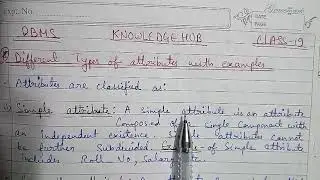 Expt. No.
DATE
PAGE
DBMS KNOWLEDGE HUB CLASS-19
Different Types of attributes with examples
Attributes are classified as:
Simple attribute: A simple attribute is an attribute
Composed of a Single Component with
an independent existence. Simple attributes cannot
be further Subdivided. of Simple attribute
includes Roll No, Salary etc.